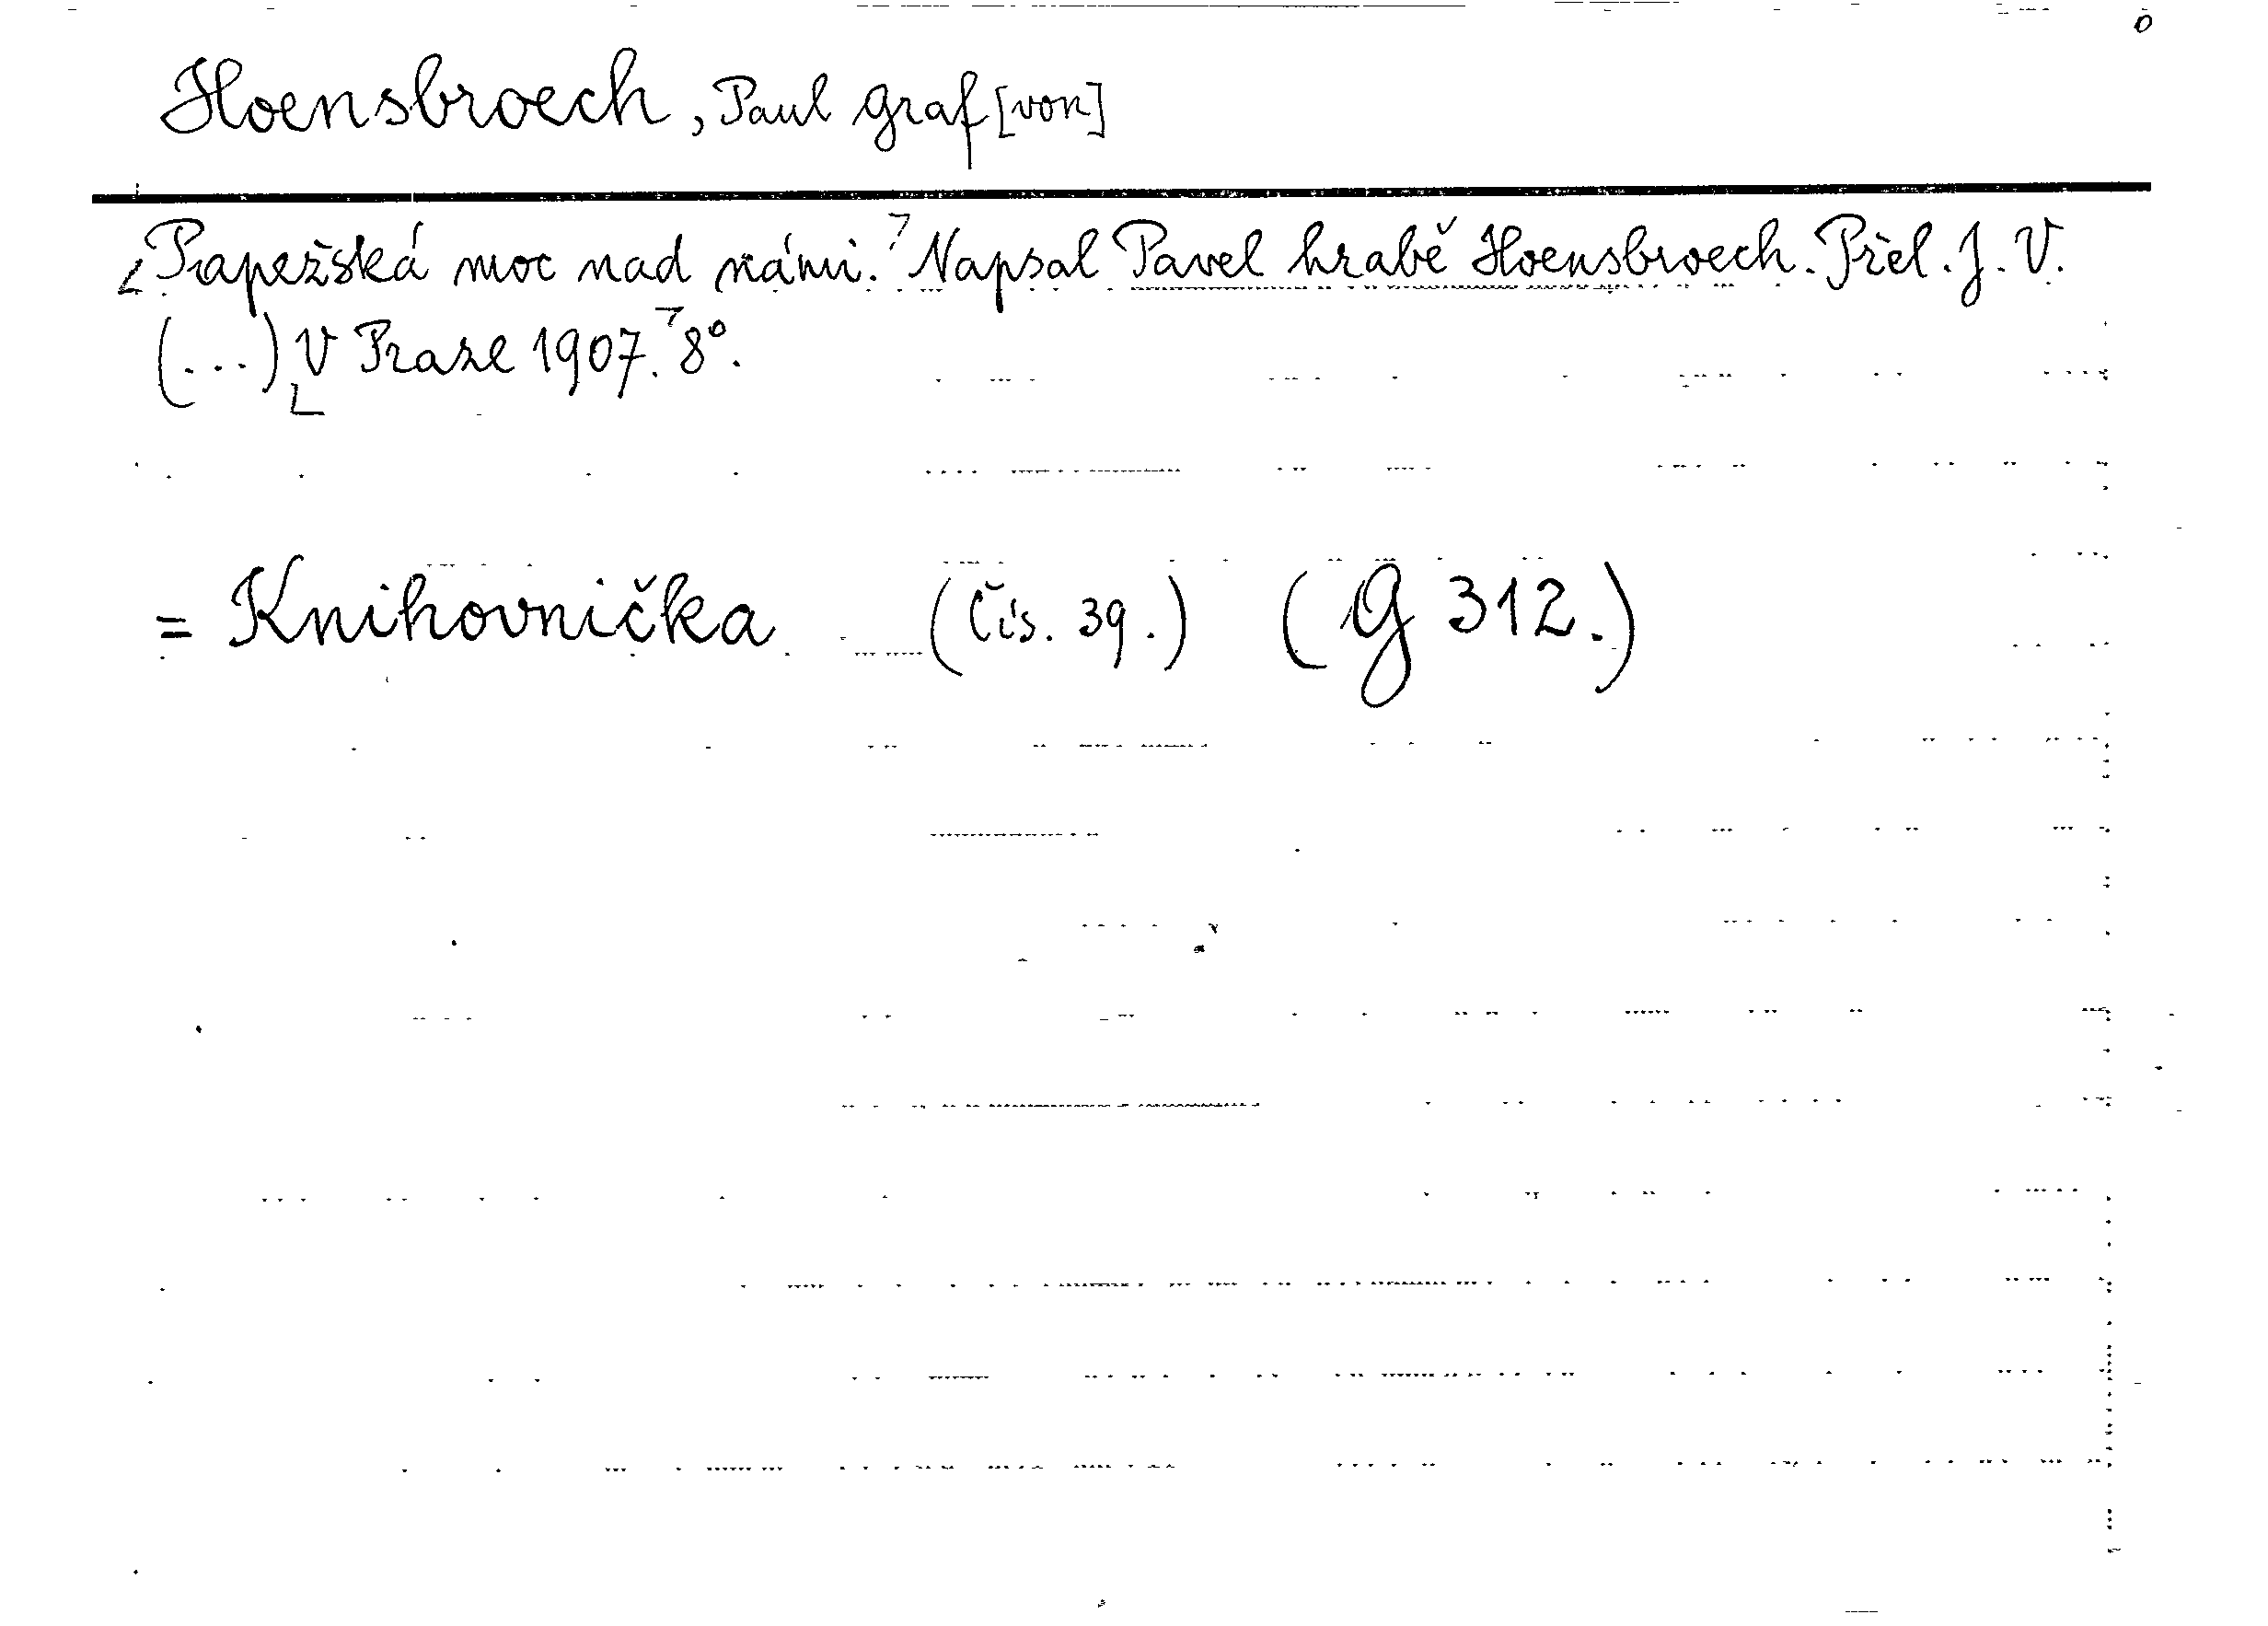 Hoensbroech, Paul Graf [von]
Papežská moc nad námi. Napsal Pavel hrabě Hoensbroech. Přel. J. V.
(...) V Praze 1907. 8°.
= Knihovnička (Čís. 39.) (G 312.)